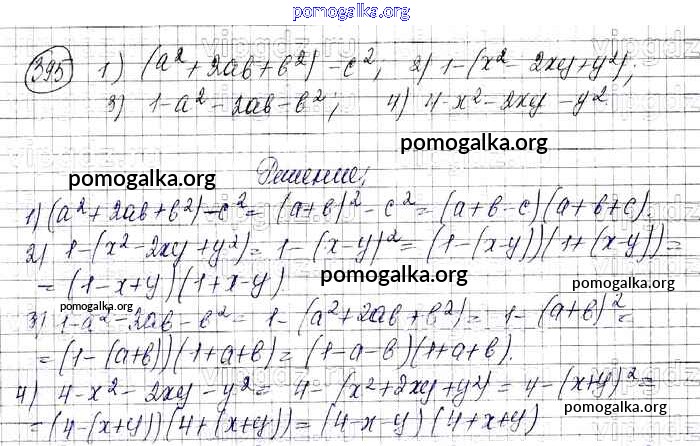 pomogalka.org
395 1) (a² + 2ab + b²) - c², 2) 1-(x² - 2xy + y²);
3) 1-a² - 2ab - b²; 4) 4-x² - 2xy - y².
pomogalka.org
Решение:
pomogalka.org
1) (a² + 2ab + b²) - c² = (a+b)² - c² = (a+b-c)(a+b+c).
2) 1-(x² - 2xy + y²) = 1-(x-y)² = (1-(x-y))(1+(x-y)) =
= (1-x+y)(1+x-y)
pomogalka.org
pomogalka.org
pomogalka.org
3) 1-a² - 2ab - b² = 1-(a² + 2ab + b²) = 1-(a+b)² =
= (1-(a+b))(1+a+b) = (1-a-b)(1+a+b).
4) 4-x² - 2xy - y² = 4-(x² + 2xy + y²) = 4-(x+y)² =
= (4-(x+y))(4+(x+y)) = (4-x-y)(4+x+y)
pomogalka.org